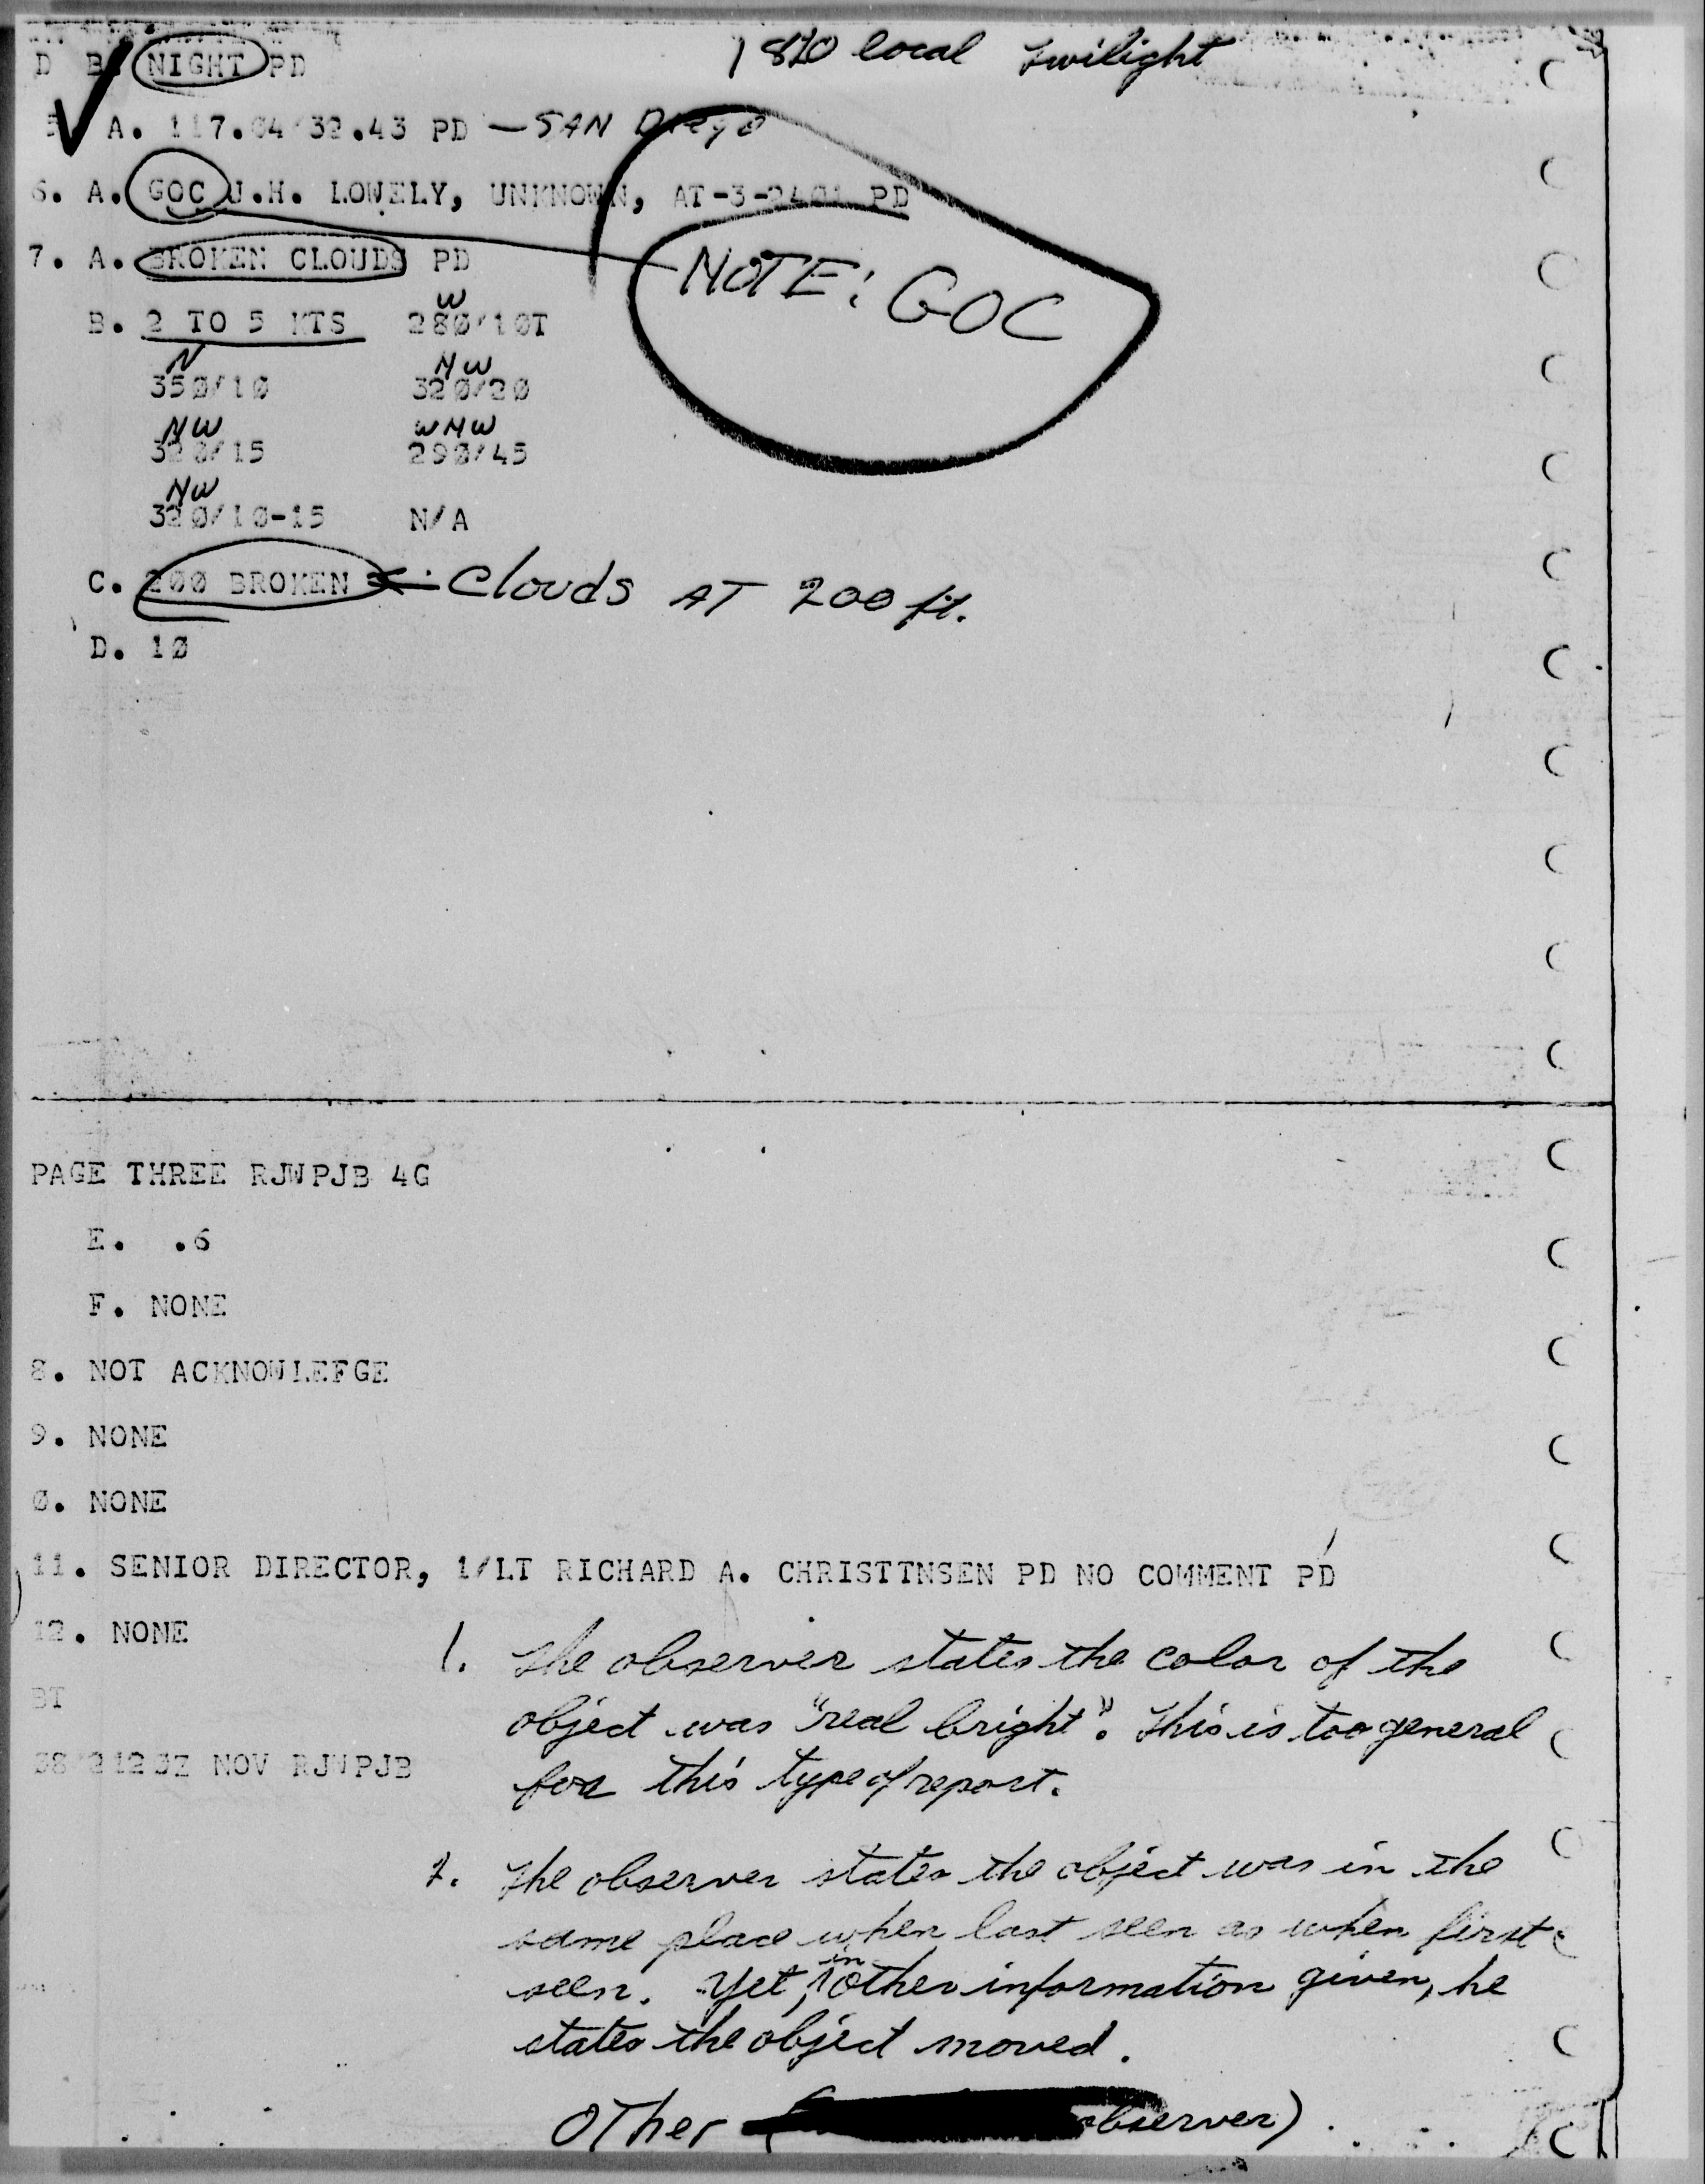 D B. NIGHT PD 1810 local twilight
A. 117.04/32.43 PD — SAN Diego
6. A. GOC J.H. LOWELY, UNKNOWN, AT-3-2401 PD
7. A. BROKEN CLOUDS PD
NOTE: GOC
W
B. 2 TO 5 KTS 280/10T
N NW
350/10 320/20
NW WNW
320/15 290/45
NW
320/10-15 N/A
C. 200 BROKEN ← Clouds AT 200 ft.
D. 10
PAGE THREE RJWPJB 4G
E. .6
F. NONE
8. NOT ACKNOWLEFGE
9. NONE
0. NONE
11. SENIOR DIRECTOR, 1/LT RICHARD A. CHRISTTNSEN PD NO COMMENT PD
12. NONE
BT
NOV RJWPJB
1. The observer states the color of the
object was "real bright". This is too general
for this type of report.
2. The observer states the object was in the
same place when last seen as when first
seen. Yet, in other information given, he
states the object moved.
OTher observer)